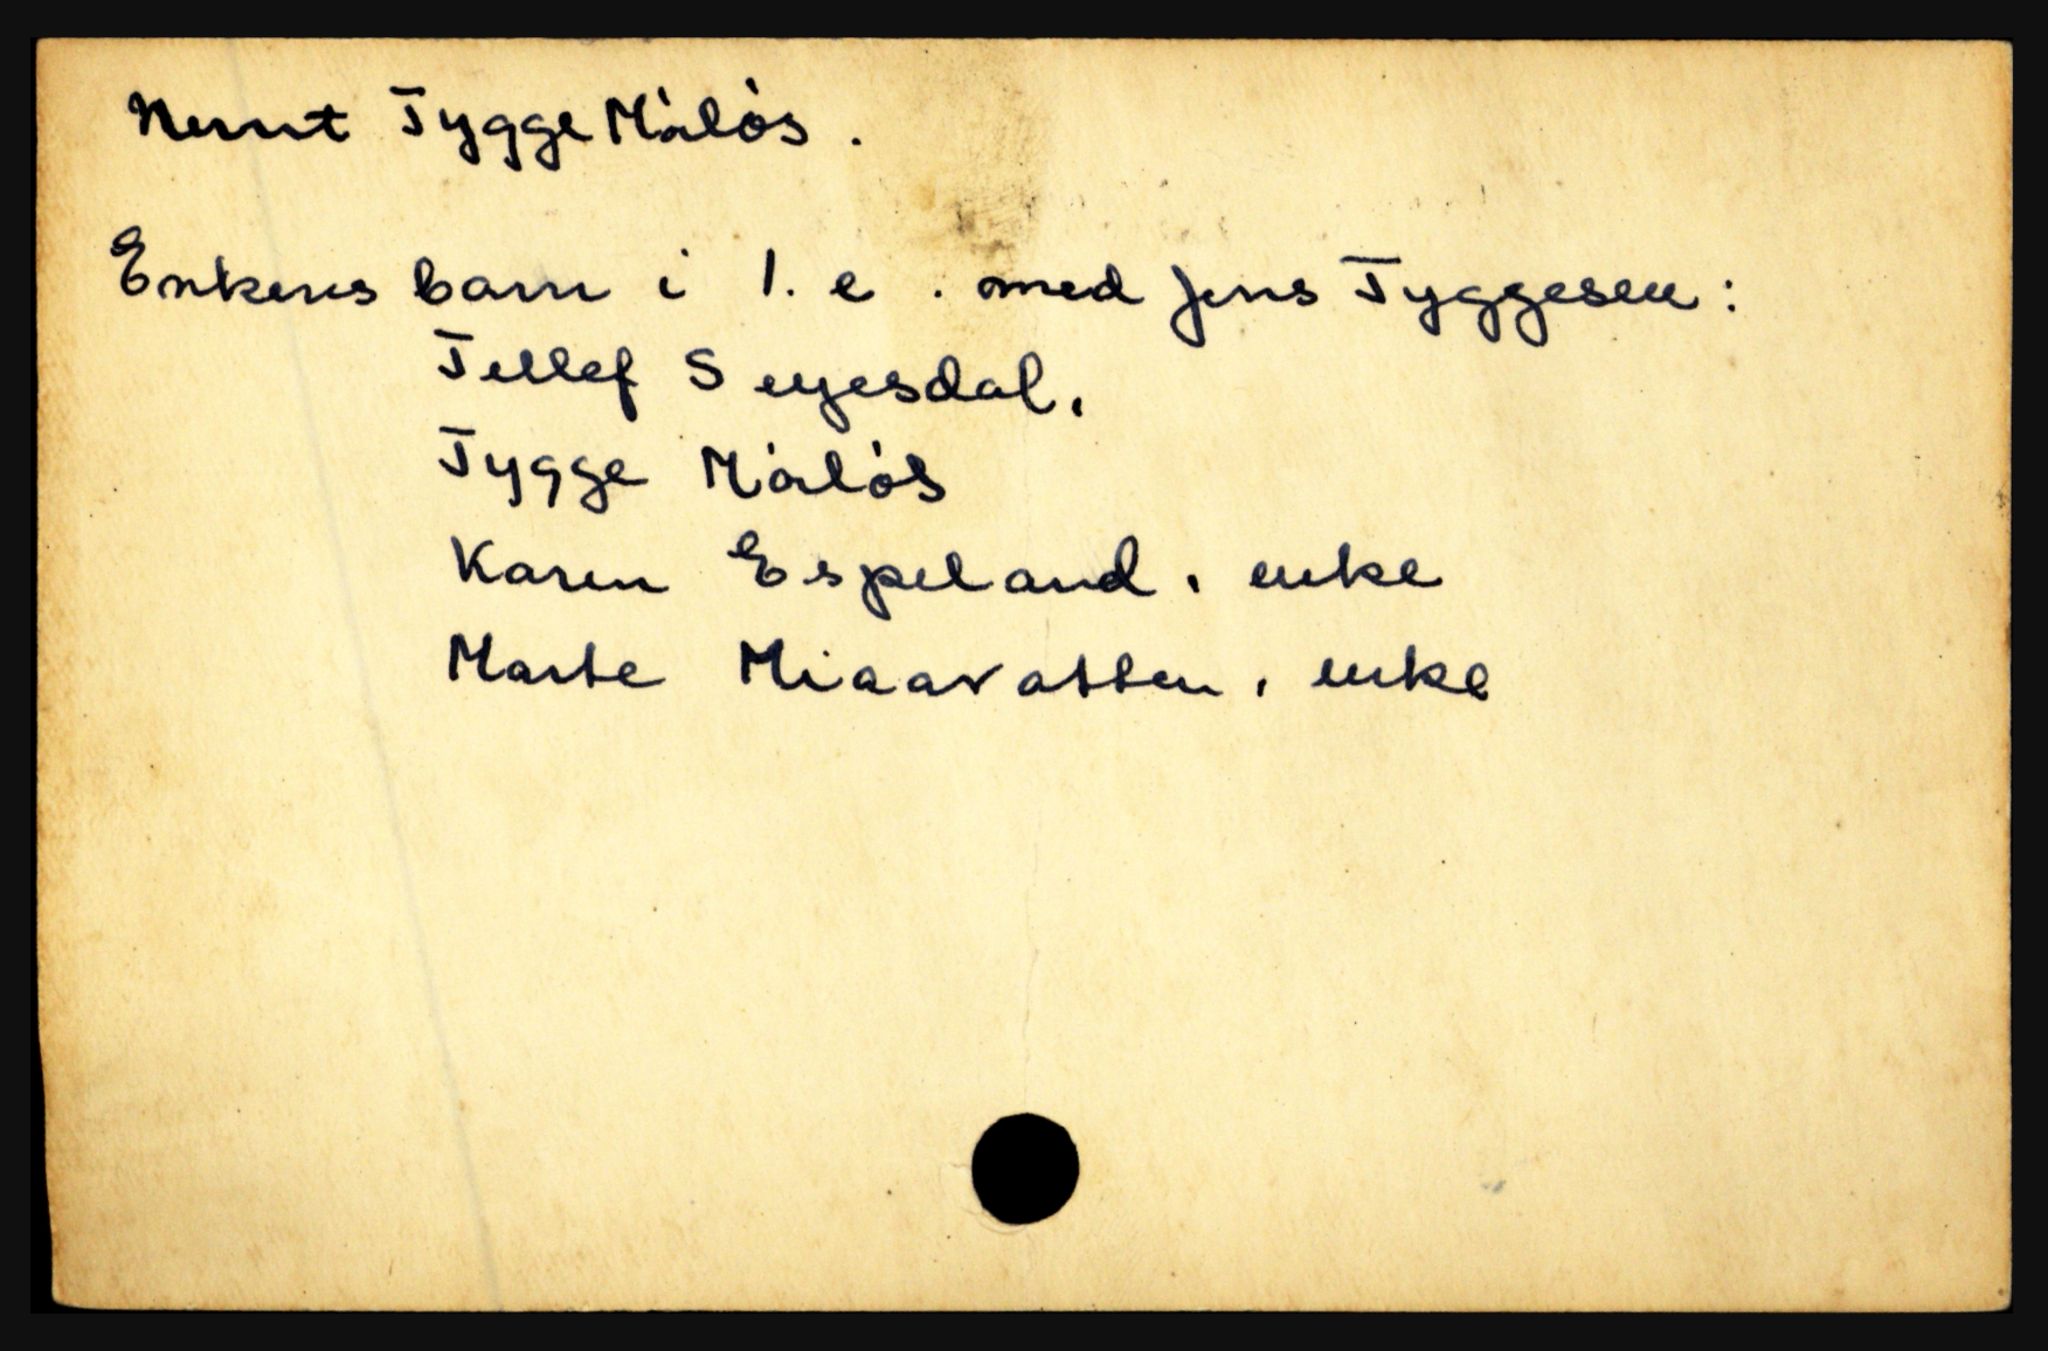 Nevnt Tygge Målós.
Enkens barn i 1. e. med Jens Tyggesen:
Tellef Seyesdal.
Tygge Målós
Karen Espeland, enke
Marte Miaavatten, enke